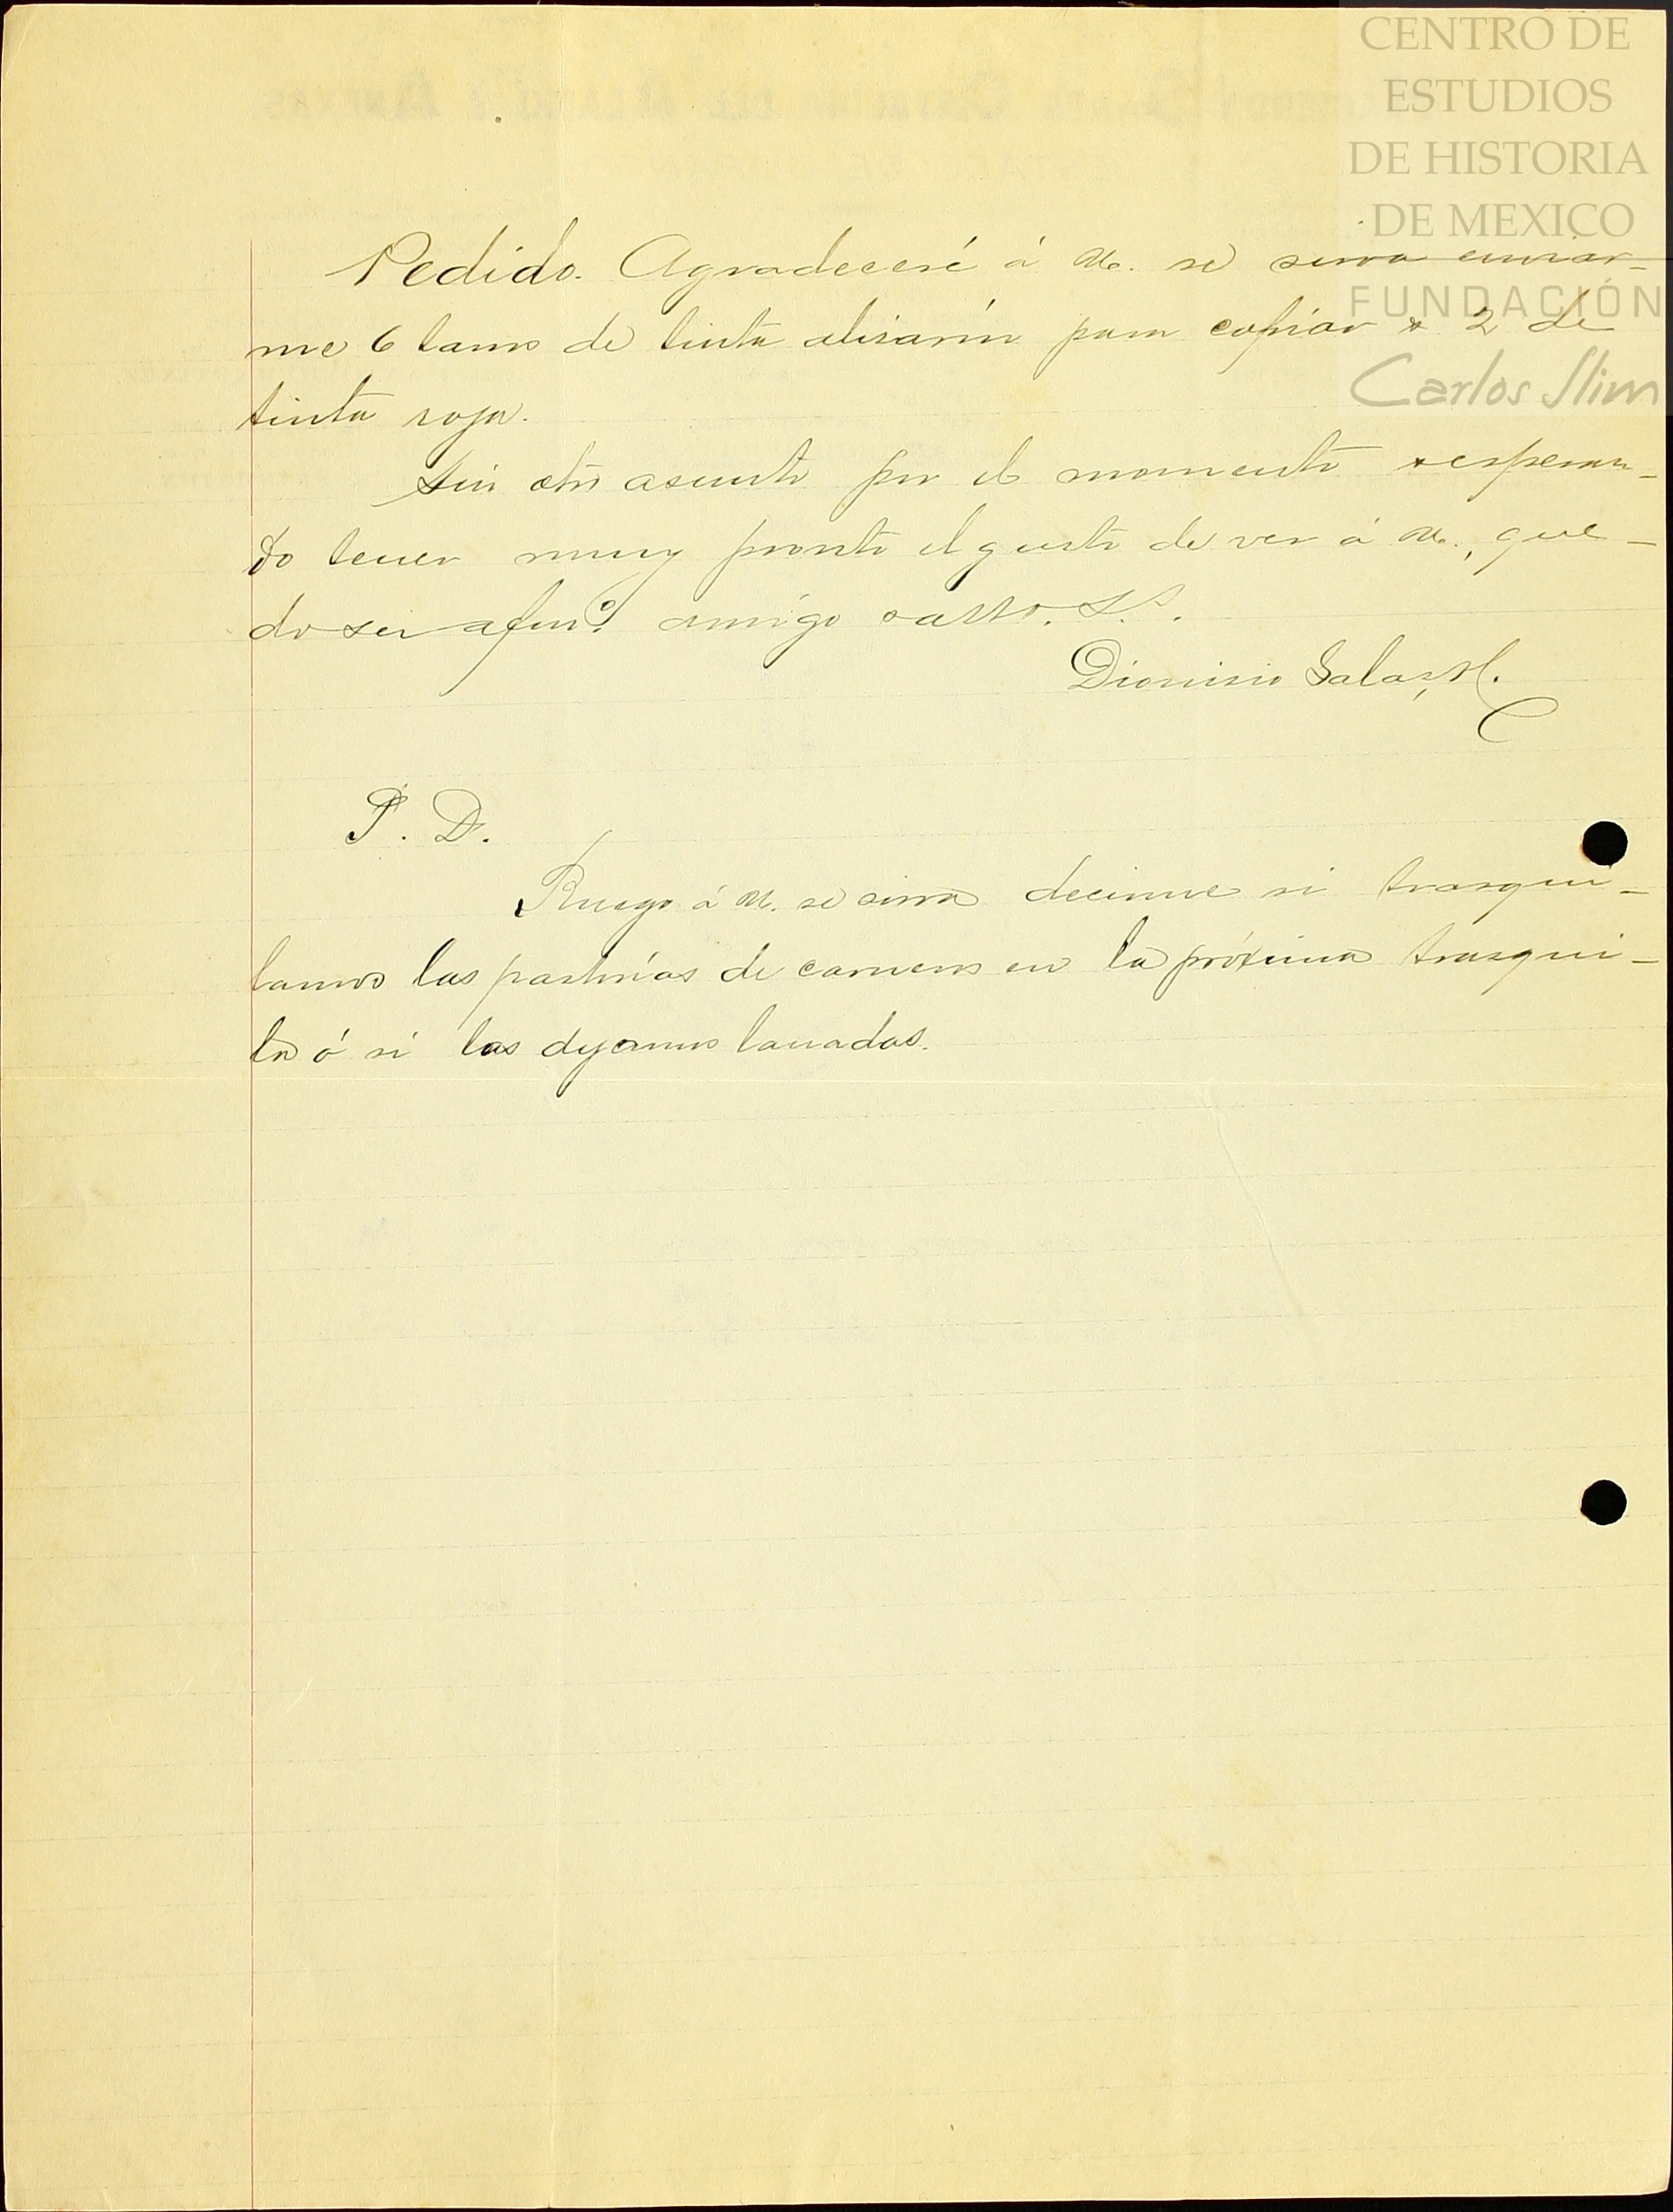 CENTRO DE
ESTUDIOS
DE HISTORIA
DE MEXICO
FUNDACIÓN
Carlos Slim
Pedido. Agradeceré á U. se sirva enviar-
me 6 tarros de tinta alizarin para copiar y 2 de
tinta roja.
Sin otro asunto por el momento y esperan-
do tener muy pronto el gusto de ver á U., que-
do su afmo. amigo y atto. S.S.
Dionisio Salas H.
P. D.
Ruego á U. se sirva decirme si trasqui-
lamos las pastorías de carneros en la próxima trasqui-
la ó si las dejamos lanadas.